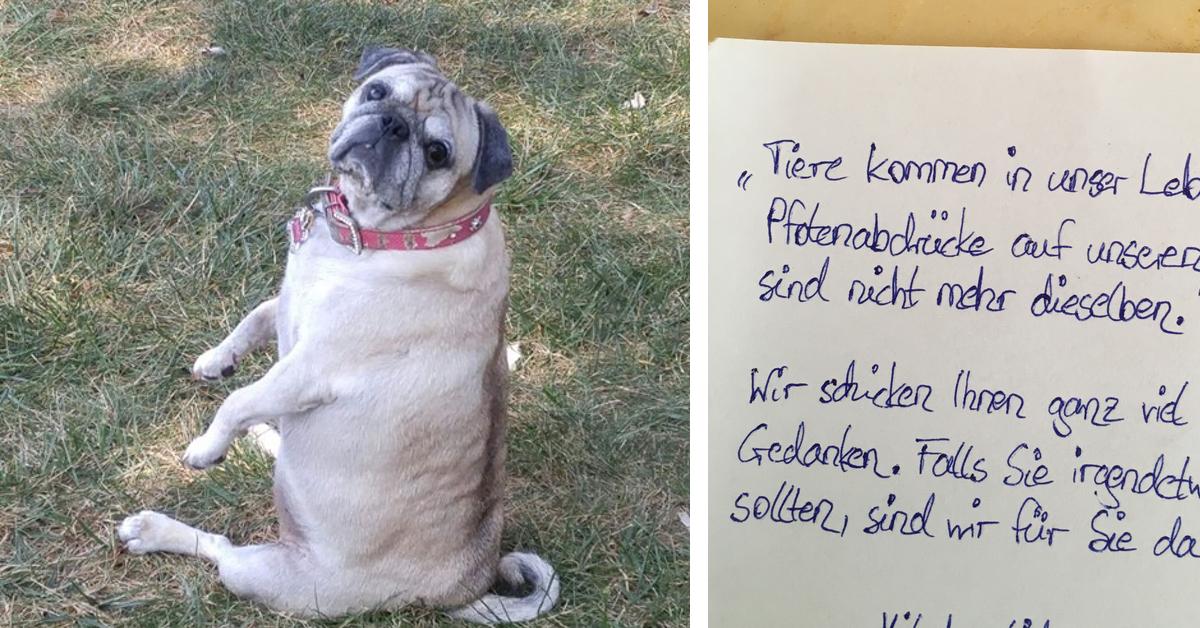 „Tiere kommen in unser Leb
Pfotenabdrücke auf unseren
sind nicht mehr dieselben."
Wir schicken Ihnen ganz viel
Gedanken. Falls Sie irgendetw
sollten, sind wir für Sie da